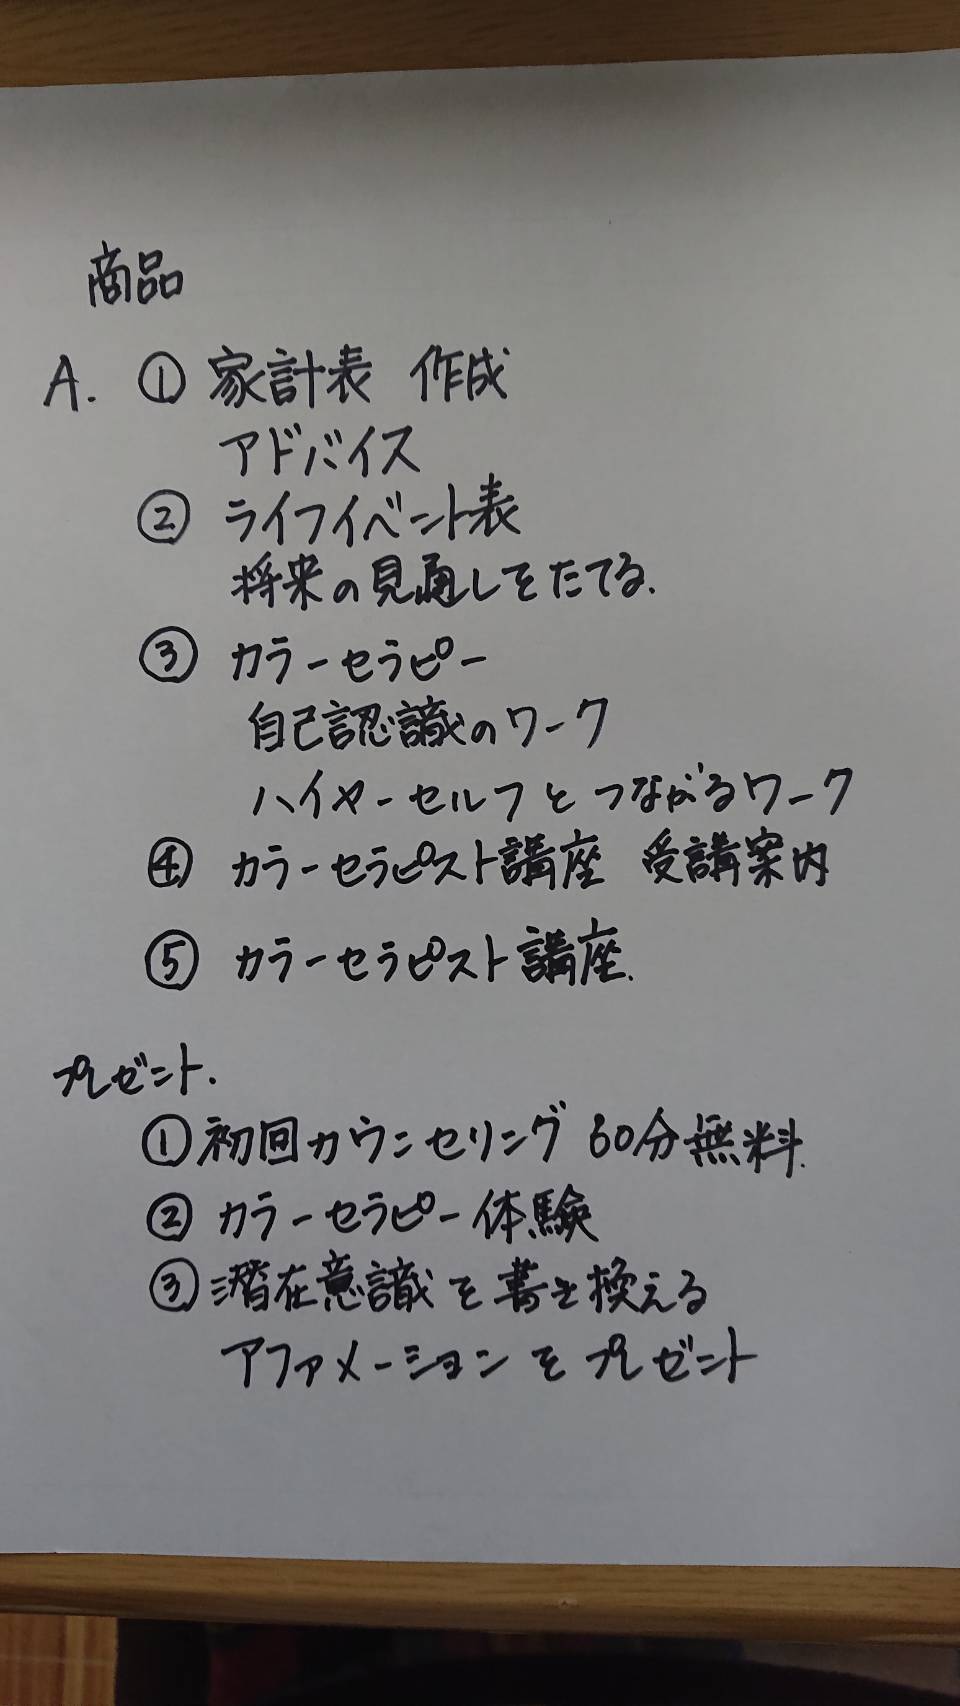 商品
A. ① 家計表 作成
アドバイス
② ライフイベント表
将来の見通しをたてる.
③ カラーセラピー
自己認識のワーク
ハイヤーセルフとつながるワーク
④ カラーセラピスト講座 受講案内
⑤ カラーセラピスト講座.
プレゼント.
① 初回カウンセリング 60分無料.
② カラーセラピー体験
③ 潜在意識を書き換える
アファメーションをプレゼント